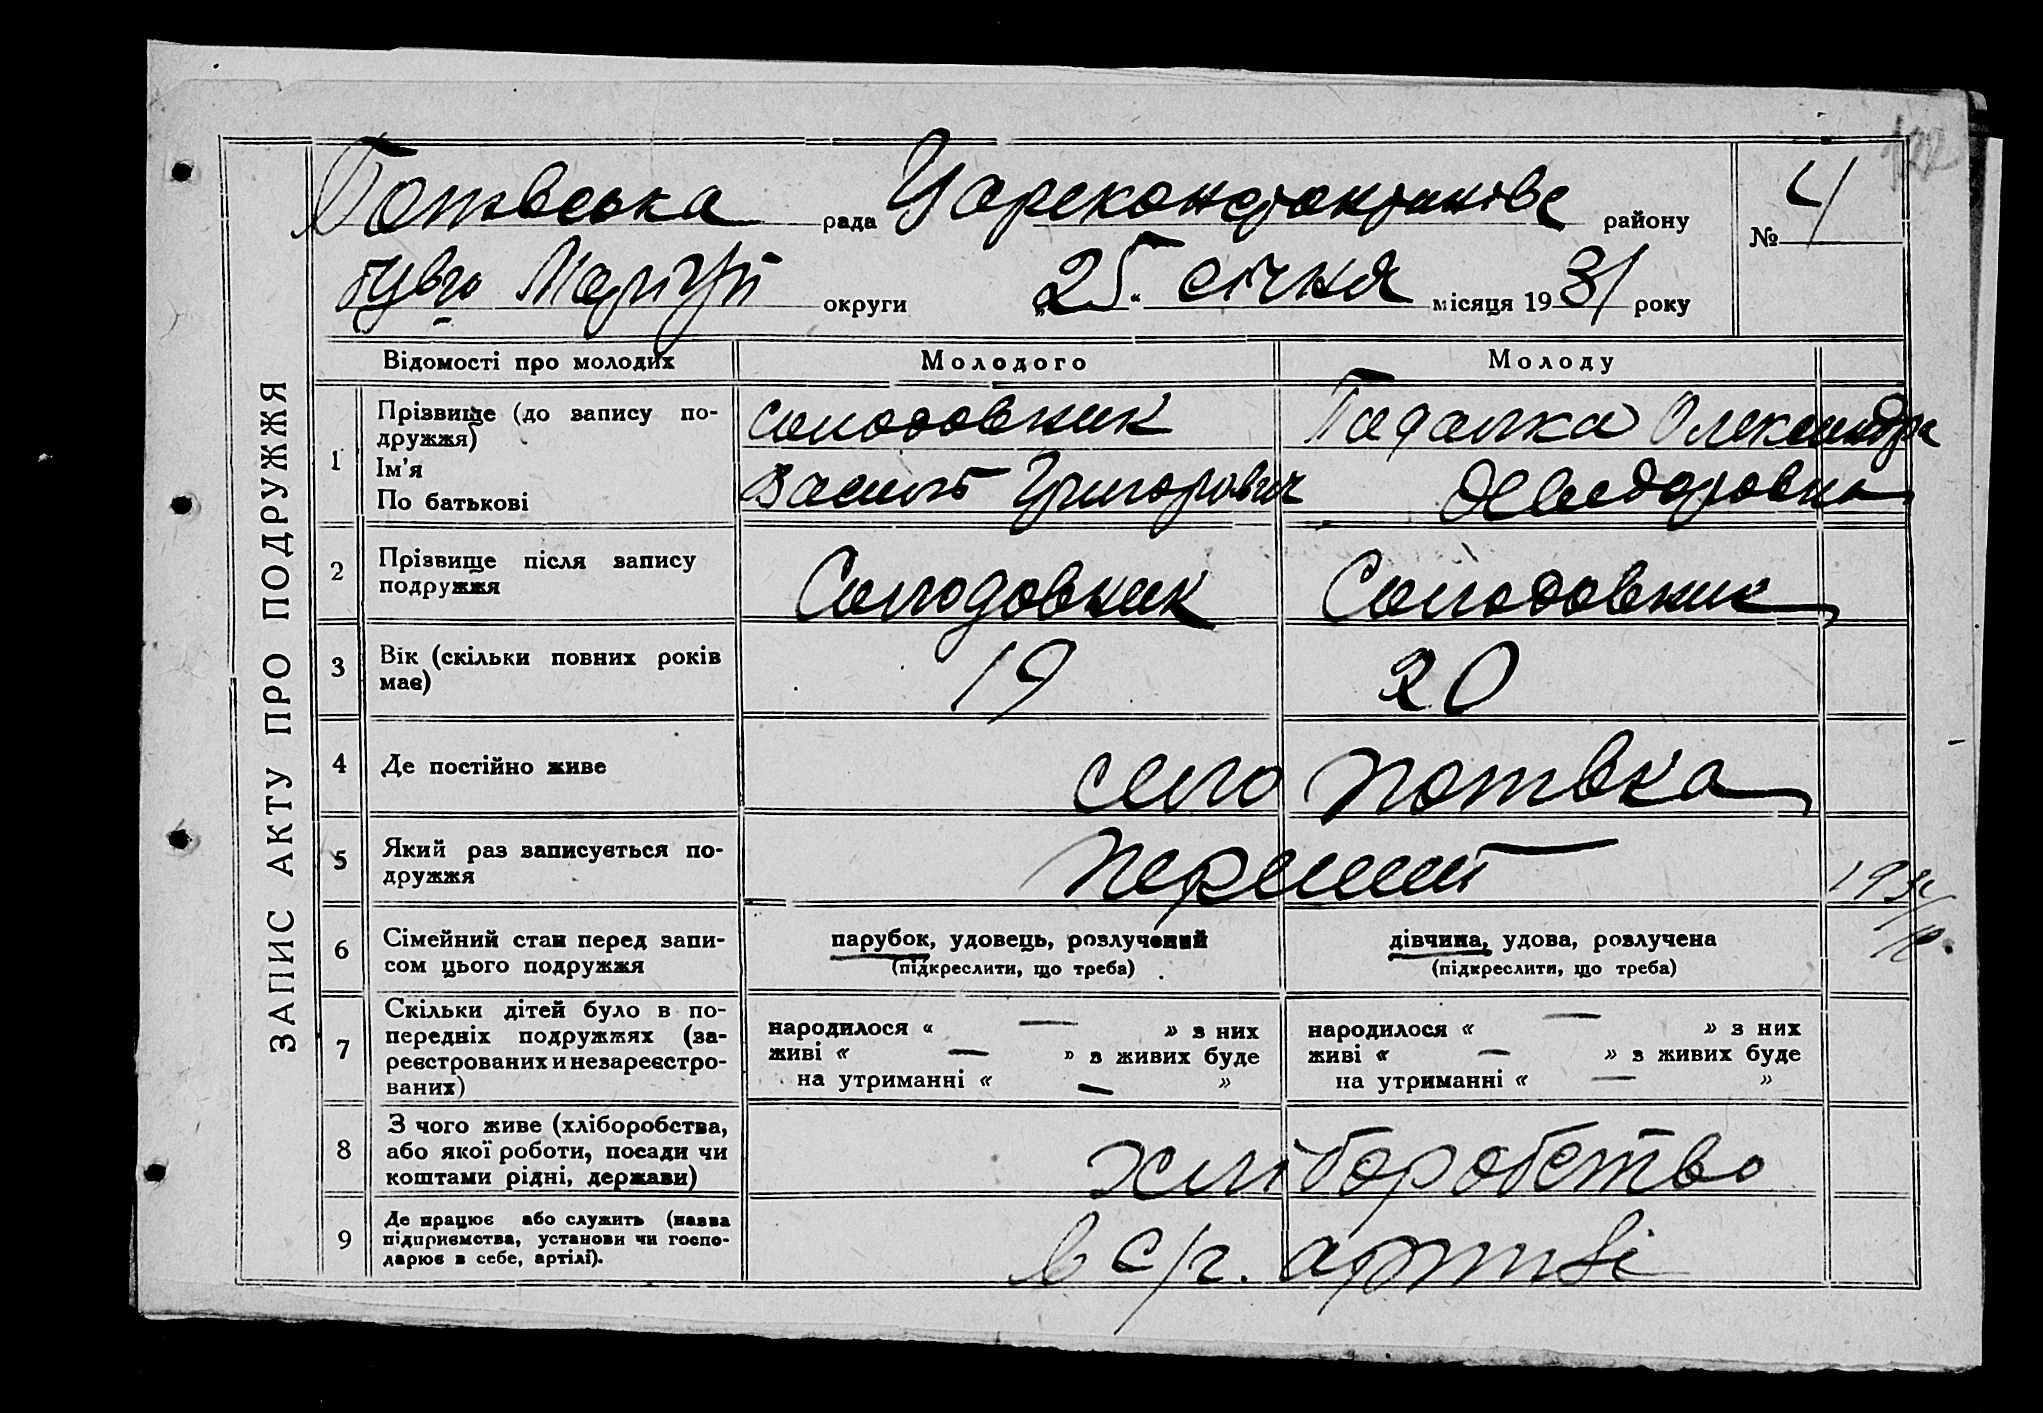 122
Потівська рада Царекостантинівс району № 4
бувш Маріуп округи „25“ січня місяця 1931 року
ЗАПИС АКТУ ПРО ПОДРУЖЖЯ
Відомості про молодих Молодого Молоду
1 Прізвище (до запису по-
дружжя)
Ім'я
По батькові
Солодовник
Василь Григорович
Гадалка Олександра
Хведоровна
2 Прізвище після запису
подружжя
Солодовник Солодовник
3 Вік (скільки повних років
має)
19 20
4 Де постійно живе село Потівка
5 Який раз записується по-
дружжя
перший
6 Сімейний стан перед запи-
сом цього подружжя
парубок, удовець, розлучений
(підкреслити, що треба)
дівчина, удова, розлучена
(підкреслити, що треба)
7 Скільки дітей було в по-
передніх подружжях (за-
реєстрованих и незареєстро-
ваних)
народилося « — » з них
живі « — » з живих буде
на утриманні « — »
народилося « — » з них
живі « — » з живих буде
на утриманні « — »
8 З чого живе (хліборобства,
або якої роботи, посади чи
коштами рідні, держави)
хліборобство
9 Де працює або служить (назва
підприємства, установи чи госпо-
дарює в себе, артілі).
в с/г. артілі